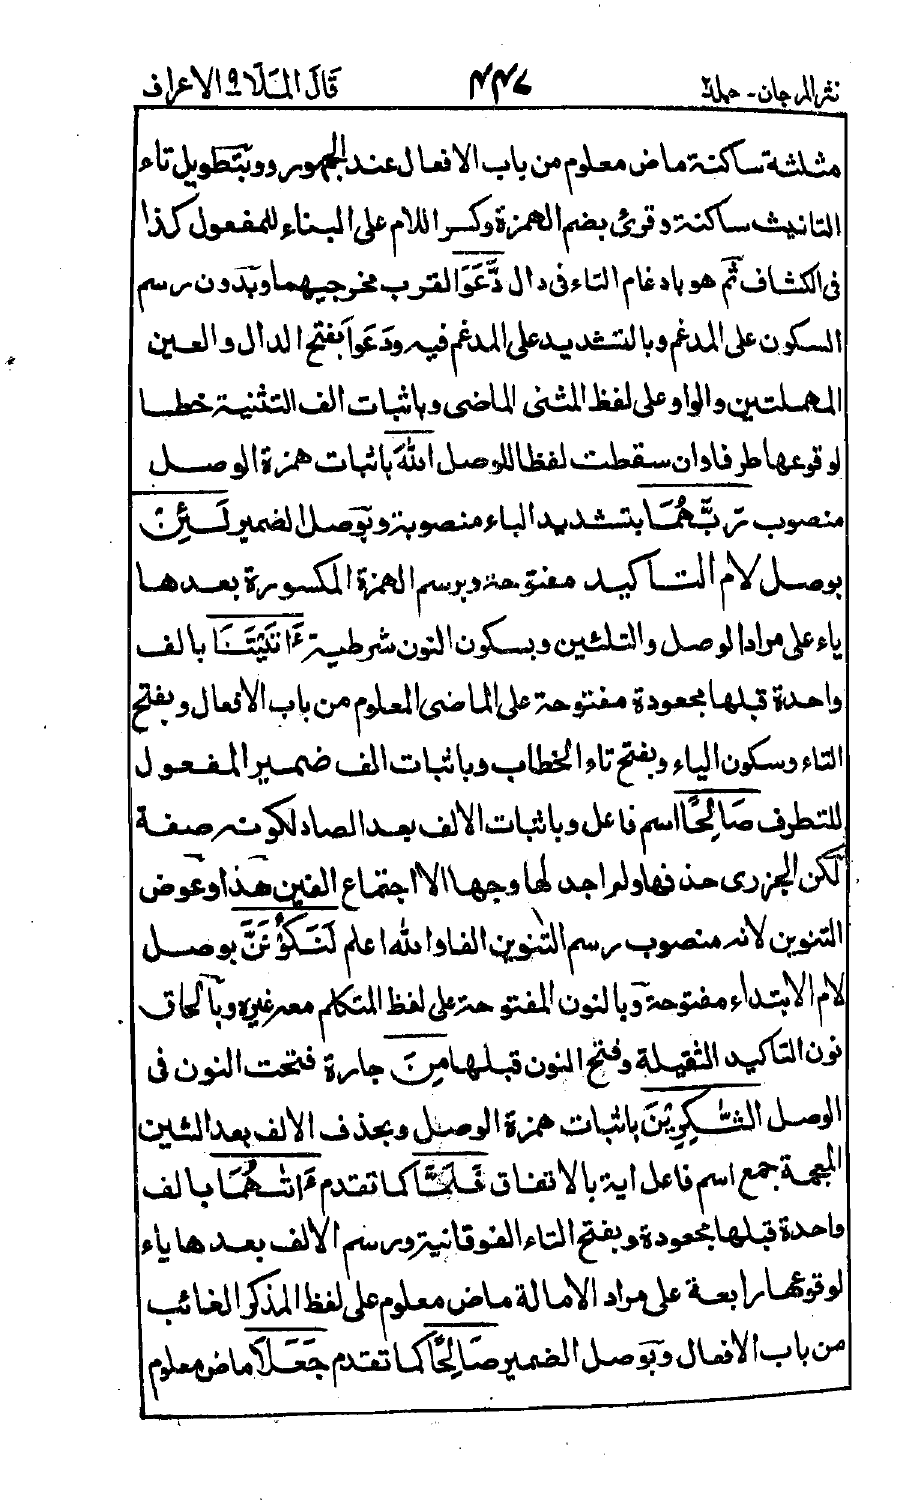 نثر المرجان - جلد ٢ ٤٤٧ قَالَ المَلَأ ٩ الاعراف
مثلثة ساكنة ماض معلوم من باب الافعال عند الجمهور وبتطويل تاء
التانيث ساكنة وقرئ بضم الهمزة وكسر اللام على البناء للمفعول كذا
فى الكشاف ثم هو بادغام التاء فى دال دَّعَوَا لقرب مخرجيهما وبدون رسم
السكون على المدغم وبالتشديد على المدغم فيه ودَعَوَا بفتح الدال والعين
المهملتين والواو على لفظ المثنى الماضى وباثبات الف التثنية خطا
لوقوعها طرفا وان سقطت لفظا للوصل اللهَ باثبات همزة الوصل
منصوب رَبَّهُمَا بتشديد الباء منصوبة وبوصل الضمير لَئِنْ
بوصل لام التاكيد مفتوحة وبرسم الهمزة المكسورة بعدها
ياء على مراد الوصل والتلئين وبسكون النون شرطية ءَاتَيْتَنَا بالف
واحدة قبلها مجعودة مفتوحة على الماضى المعلوم من باب الافعال وبفتح
التاء وسكون الياء وبفتح تاء الخطاب وباثبات الف ضمير المفعول
للتطرف صَالِحًا اسم فاعل وباثبات الالف بعد الصاد لكونه صفة
لكن الجزرى حذفها ولم اجد لها وجها الا اجتماع الفين هذا وعوض
التنوين لانه منصوب رسم التنوين الفا والله اعلم لَنَكُوْنَنَّ بوصل
لام الابتداء مفتوحة وبالنون المفتوحة على لفظ المتكلم معه غيره وبالحاق
نون التاكيد الثقيلة وفتح النون قبلها مِنَ جارة فتحت النون فى
الوصل الشّٰكِرِيْنَ باثبات همزة الوصل وبحذف الالف بعد الشين
المعجمة جمع اسم فاعل اية بالاتفاق فَلَمَّا كما تقدم ءَاتٰىهُمَا بالف
واحدة قبلها مجعودة وبفتح التاء الفوقانية ورسم الالف بعدها ياء
لوقوعها رابعة على مراد الامالة ماض معلوم على لفظ المذكر الغائب
من باب الافعال وبوصل الضمير صَالِحًا كما تقدم جَعَلَا ماض معلوم